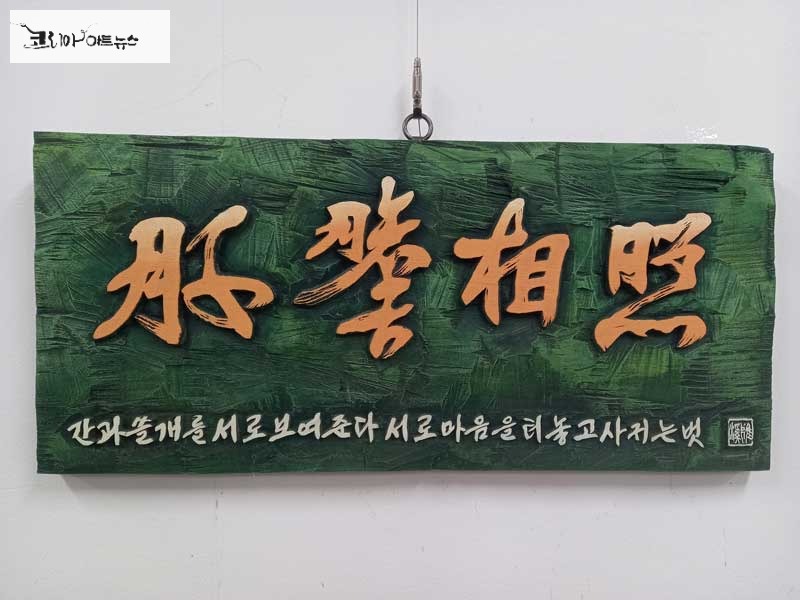 코리아아트뉴스
肝膽相照
간과쓸개를서로보여준다 서로마음을터놓고사귀는벗